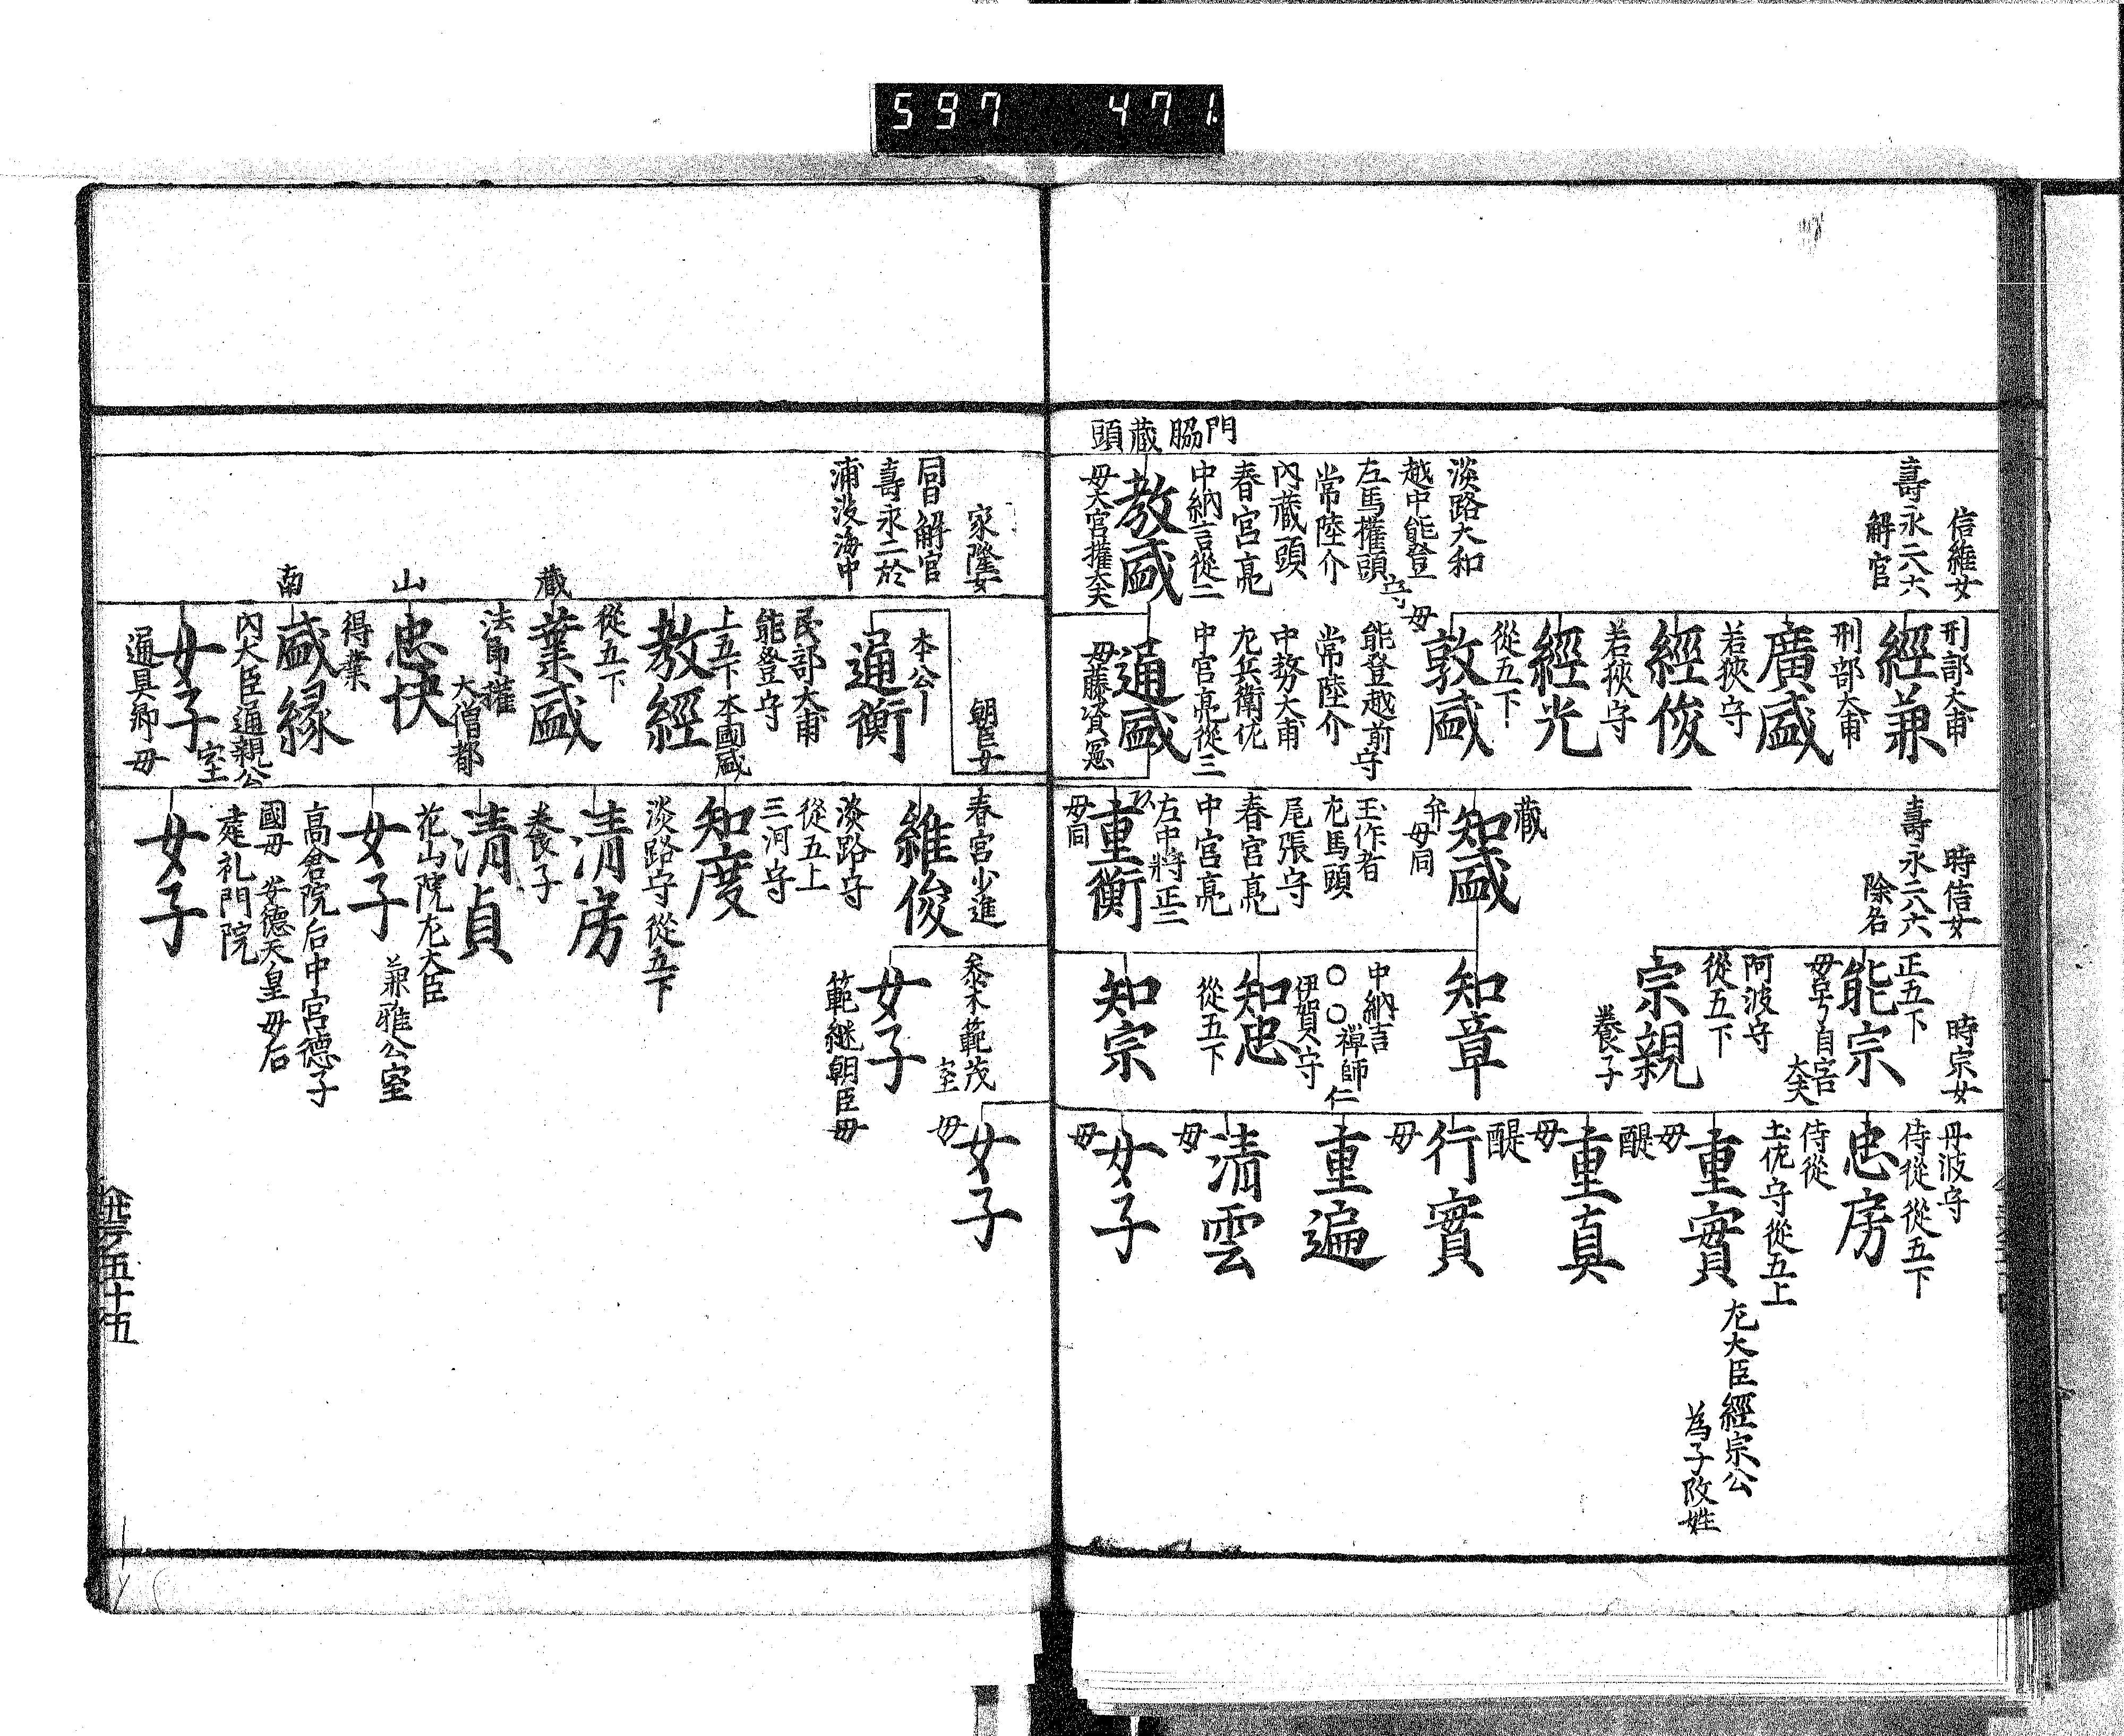 597 471
門脇
蔵頭
信維女
壽永二八六
解官
淡路大和
越中能登
守
左馬權頭
常陸介
內藏頭
春宮亮
中納言從二
教盛
母大宮權大夫
家隆女
同日解官
壽永二於
浦没海中
刑部大甫
經兼
刑部大甫
廣盛
若狹守
經俊
若狹守
經光
從五下
敦盛
母
能登越前守
常陸介
中務大甫
左兵衛佐
中宮亮從三
通盛
母藤資憲
朝臣女
本公
通衡
民部大甫
能登守
上五下本國盛
教經
從五下
藏
業盛
法印權
大僧都
山
忠快
得業
南
盛縁
內大臣通親公
室
女子
通具卿母
時信女
壽永二八六
除名
藏
知盛
弁母同
玉作者
左馬頭
尾張守
春宮亮
中宮亮
左中將正二
重衡
母同
春宮少進
維俊
淡路守
從五上
三河守
知度
淡路守從五下
清房
養子
清貞
花山院左大臣
兼雅公室
女子
高倉院后中宮德子
國母 安德天皇母后
建礼門院
女子
時宗女
正五下
能宗
阿波守
從五下
宗親
養子
知章
中納言
〇〇禅師
仁
伊賀守
知忠
從五下
知宗
参木範茂
室
女子
範継朝臣母
丹波守
侍從從五下
忠房
侍從
土佐守從五上
重實
左大臣經宗公
為子改姓
母
醍
重真
母
醍
行實
母
重遍
清雲
母
女子
母
女子
母
五十五